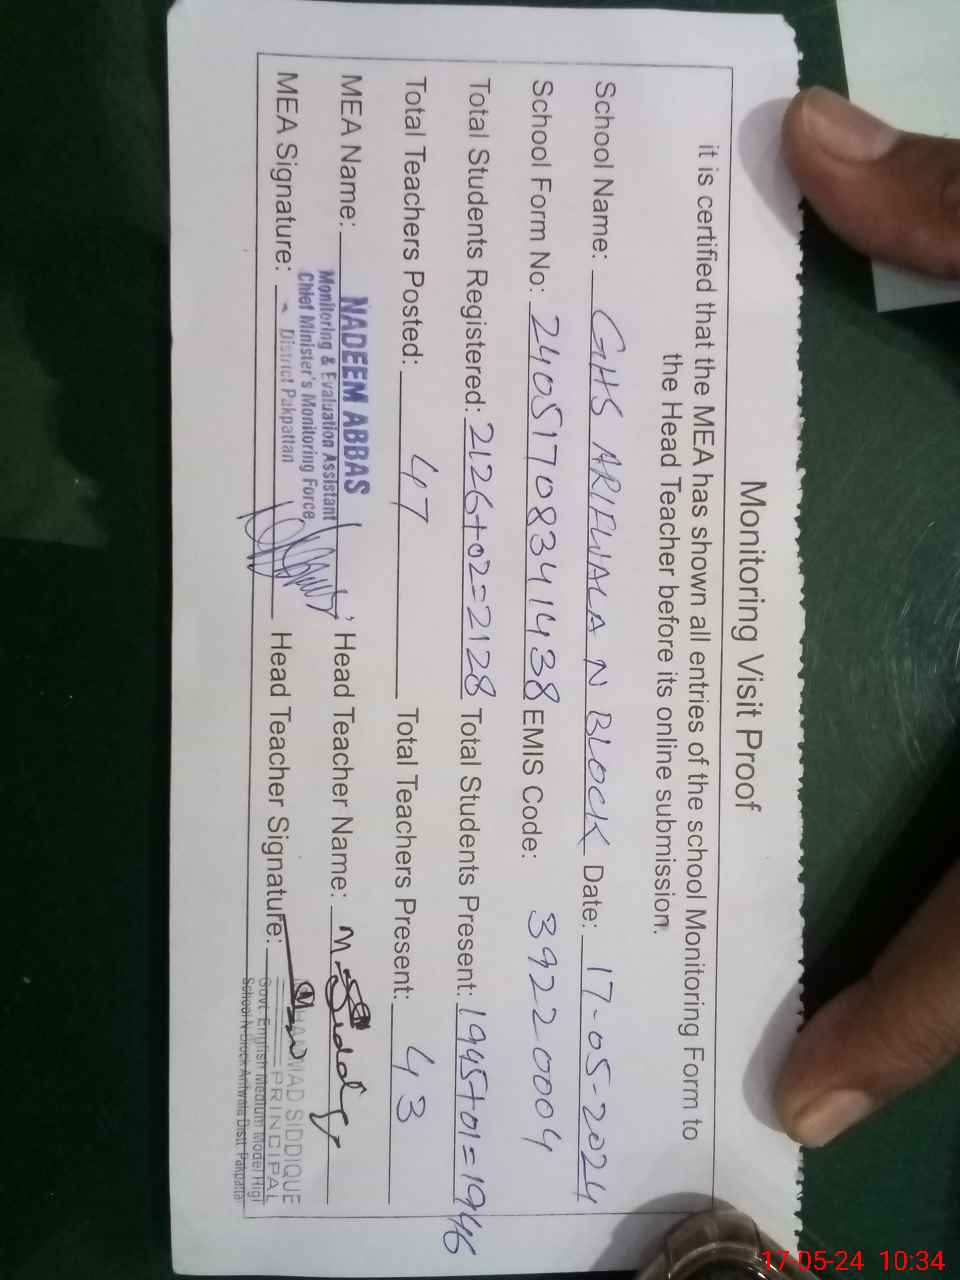 Monitoring Visit Proof
it is certified that the MEA has shown all entries of the school Monitoring Form to
the Head Teacher before its online submission.
School Name: GHS ARIFWALA N BLOCK Date: 17-05-2024
School Form No: 24051708341438 EMIS Code: 39220004
Total Students Registered: 2126+02=2128 Total Students Present: 1945+01=1946
Total Teachers Posted: 47 Total Teachers Present: 43
MEA Name: NADEEM ABBAS Head Teacher Name: M. Siddiq
Monitoring & Evaluation Assistant
Chief Minister's Monitoring Force
District Pakpattan
MEA Signature: Head Teacher Signature:
MUHAMMAD SIDDIQUE
PRINCIPAL
Govt. English Medium Model High
School N-Block Arifwala Distt. Pakpattan
17-05-24 10:34